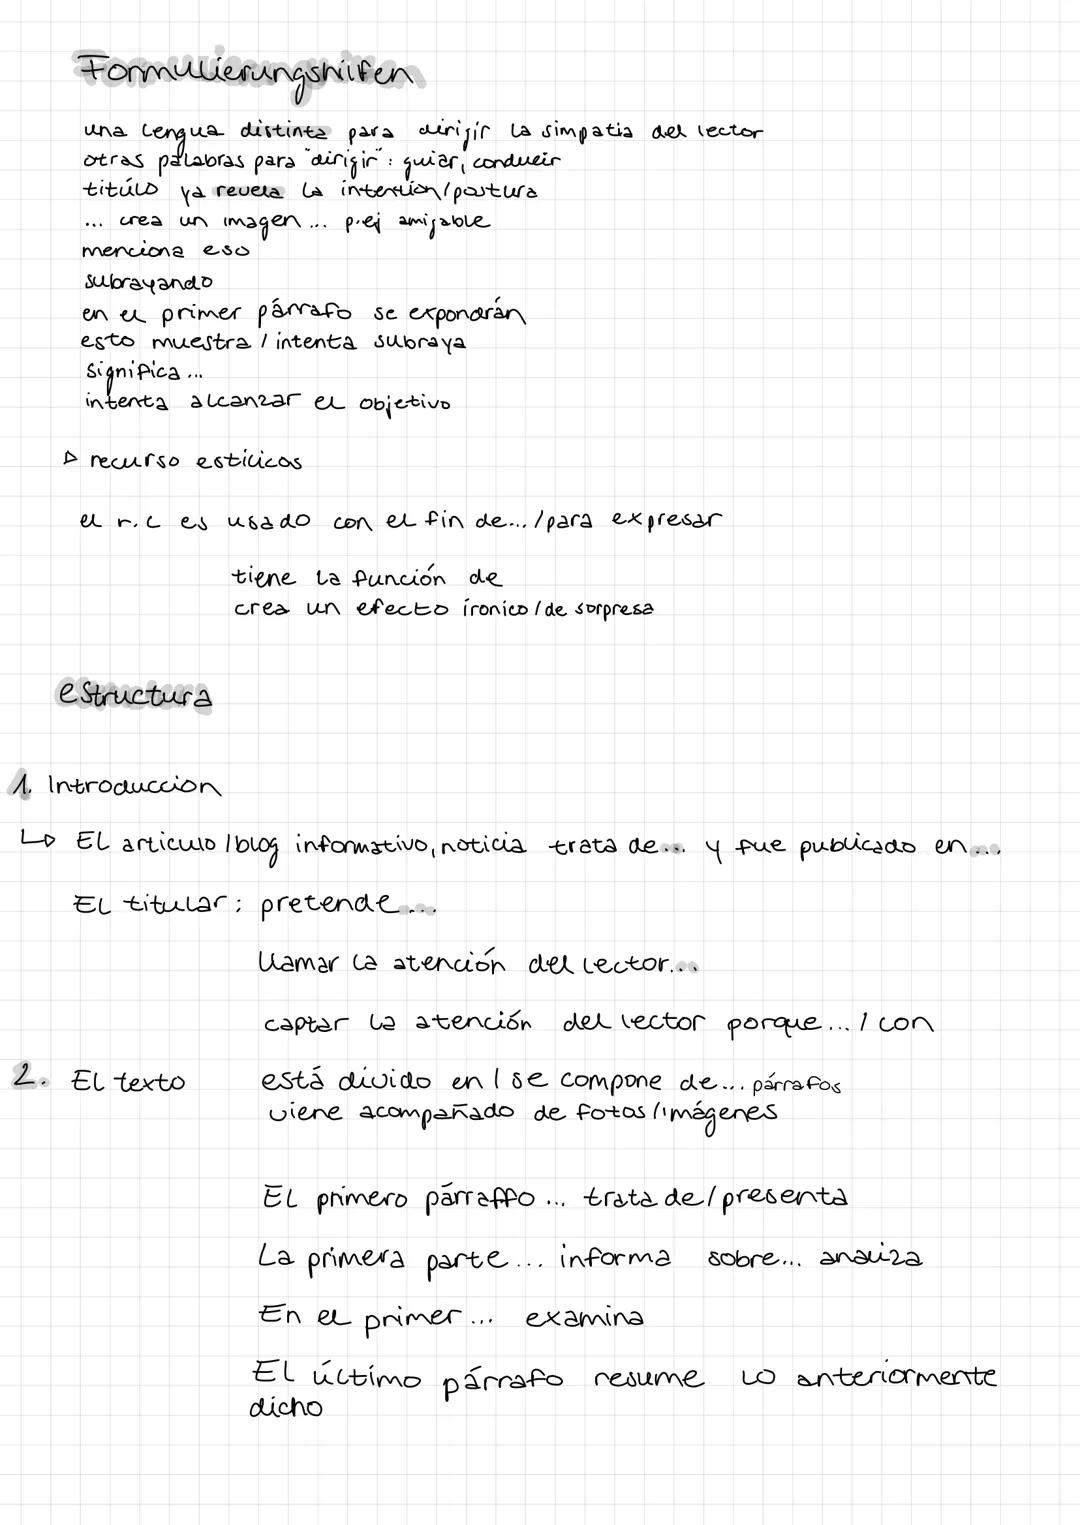 Formulierungshilfen
una lengua distinta para dirigir la simpatia del lector
otras palabras para "dirigir": guiar, conducir
titúlo ya revela la intention/postura
... crea un imagen ... p.ej amigable
menciona eso
subrayando
en el primer párrafo se expondrán
esto muestra / intenta subraya
significa ...
intenta alcanzar el objetivo
▷ recurso estílicos
el r.c es usado con el fin de... /para expresar
tiene la función de
crea un efecto íronico / de sorpresa
estructura
1. Introduccion
↳ El articulo /blog informativo, noticia trata de... y fue publicado en ...
El titular: pretende ...
llamar la atención del lector...
captar la atención del lector porque ... / con
2. El texto está divido en / se compone de ... párrafos
viene acompañado de fotos/imágenes
El primero párraffo ... trata de/presenta
La primera parte ... informa sobre... analiza
En el primer ... examina
El último párrafo resume lo anteriormente
dicho